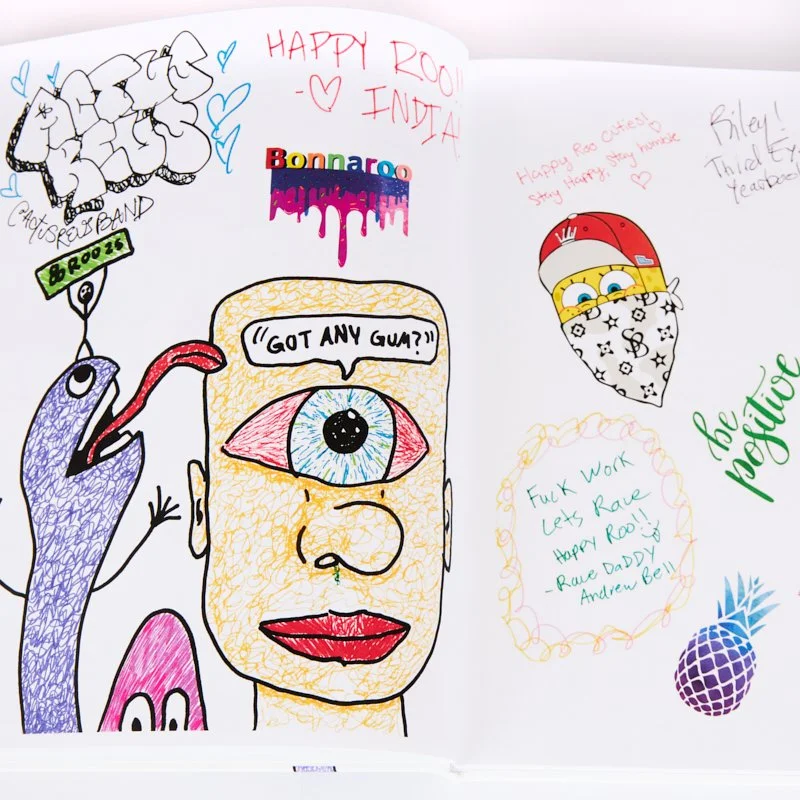 HAPPY ROO!!
-♡ INDIA!
Bonnaroo
ROO25
"GOT ANY GUM?"
Happy Roo Cuties!♡
Stay Happy, Stay humble
♡
Riley!
Third Eye
Yearbook
be
positive
Fuck Work
Lets Rave
Happy Roo!!
-Rave DaDDY
Andrew Bell